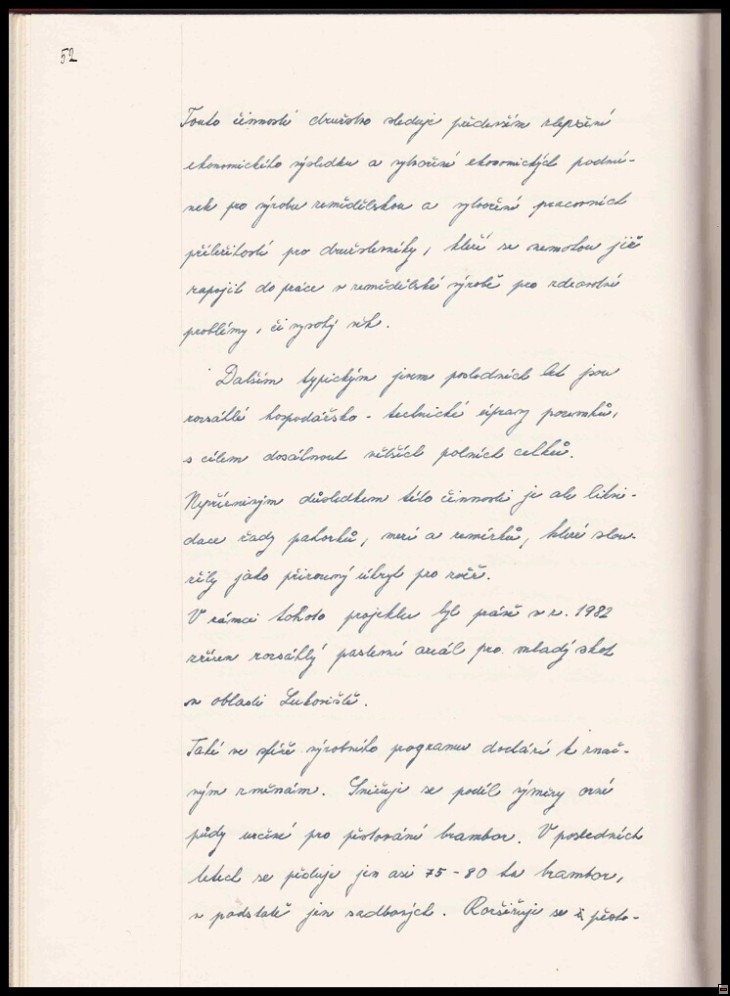 52
Touto činností družstvo sleduje především zlepšení
ekonomického výsledku a vytvoření ekonomických podmí-
nek pro výrobu zemědělskou a vytvoření pracovních
příležitostí pro družstevníky, kteří se nemohou již
zapojit do práce v zemědělské výrobě pro zdravotní
problémy, či vysoký věk.
Dalším typickým jevem posledních let jsou
rozsáhlé hospodářsko - technické úpravy pozemků,
s cílem dosáhnout větších polních celků.
Nepříznivým důsledkem této činnosti je ale likvi-
dace řady pahorků, mezí a remízků, které slou-
žily jako přirozený úkryt pro zvěř.
V rámci tohoto projektu byl právě v r. 1982
zřízen rozsáhlý pastevní areál pro mladý skot
v oblasti Lukoviště.
Také ve sféře výrobního programu dochází k znač-
ným změnám. Snižuje se podíl výměry orné
půdy určené pro pěstování brambor. V posledních
letech se pěstuje jen asi 75 - 80 ha brambor,
v podstatě jen sadbových. Rozšiřuje se i pěsto-